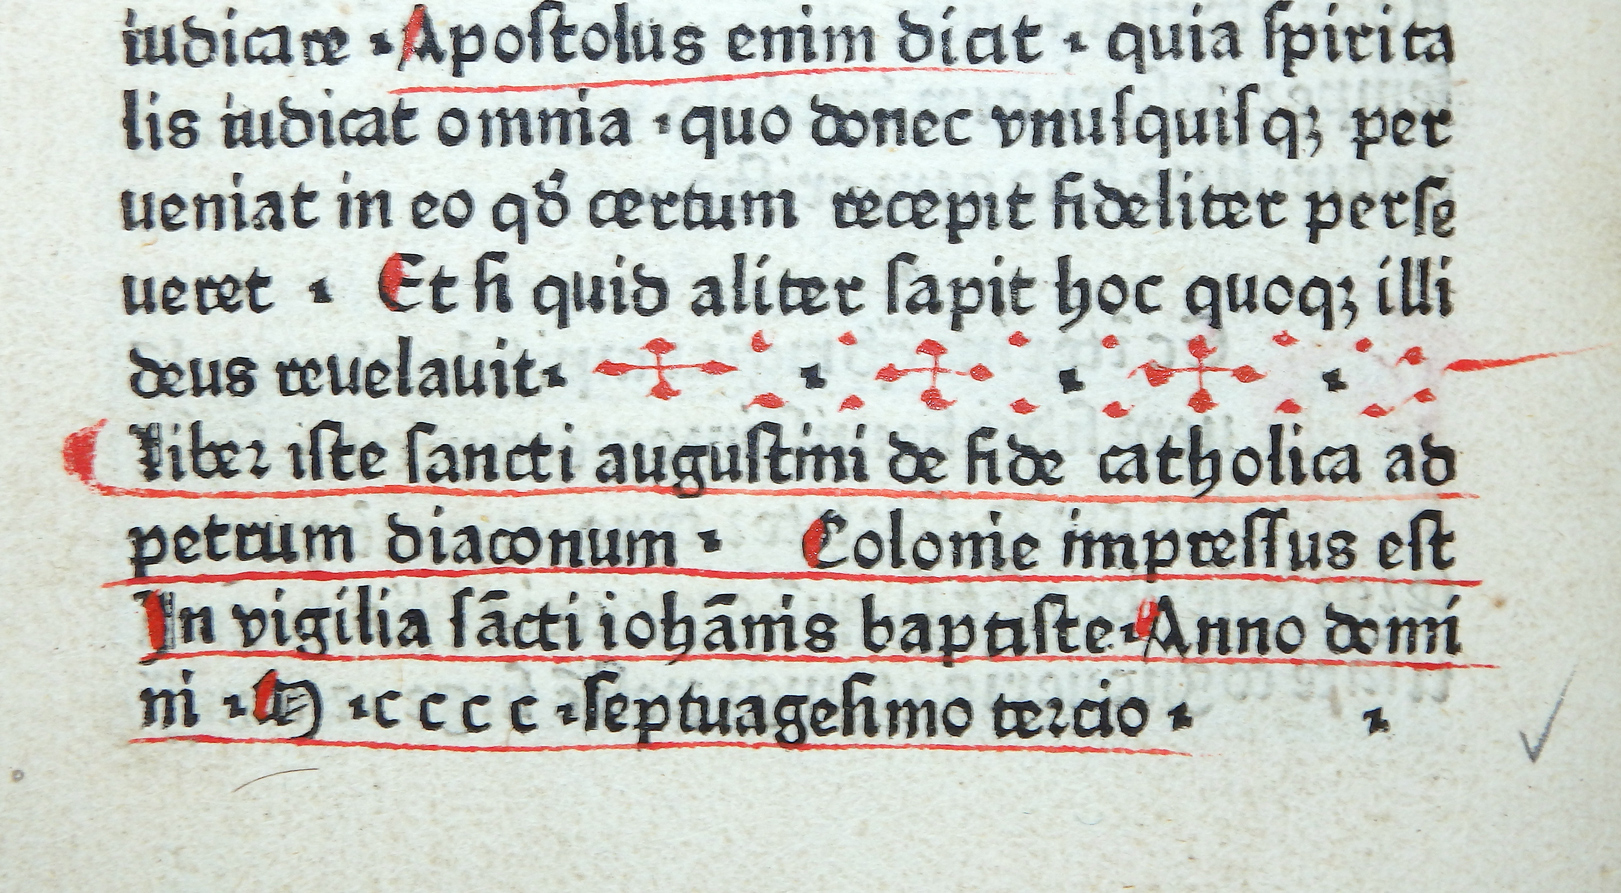 iudicare · Apoſtolus enim dicit · quia ſpirita
lis iudicat omnia · quo donec vnuſquiſqꝫ per
ueniat in eo qđ certum recepit fideliter perſe
ueret · Et ſi quid aliter ſapit hoc quoqꝫ illi
deus reuelauit · · · ·
Liber iſte ſancti auguſtini de fide catholica ad
petrum diaconum · Colonie impreſſus eſt
In vigilia ſācti iohānis baptiſte · Anno domi
ni · M · c c c c · ſeptuageſimo tercio · ·